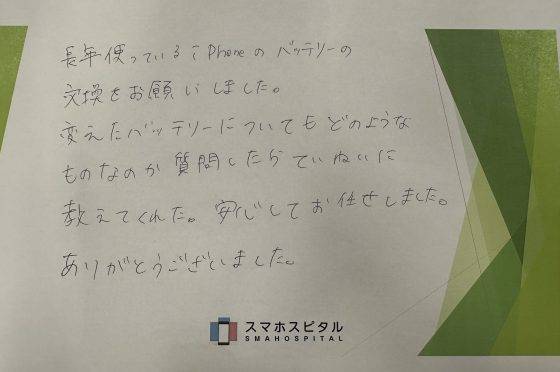 長年使っているiPhoneのバッテリーの
交換をお願いしました。
変えたバッテリーについてもどのような
ものなのか質問したらていねいに
教えてくれた。安心してお任せしました。
ありがとうございました。
スマホスピタル
SMAHOSPITAL